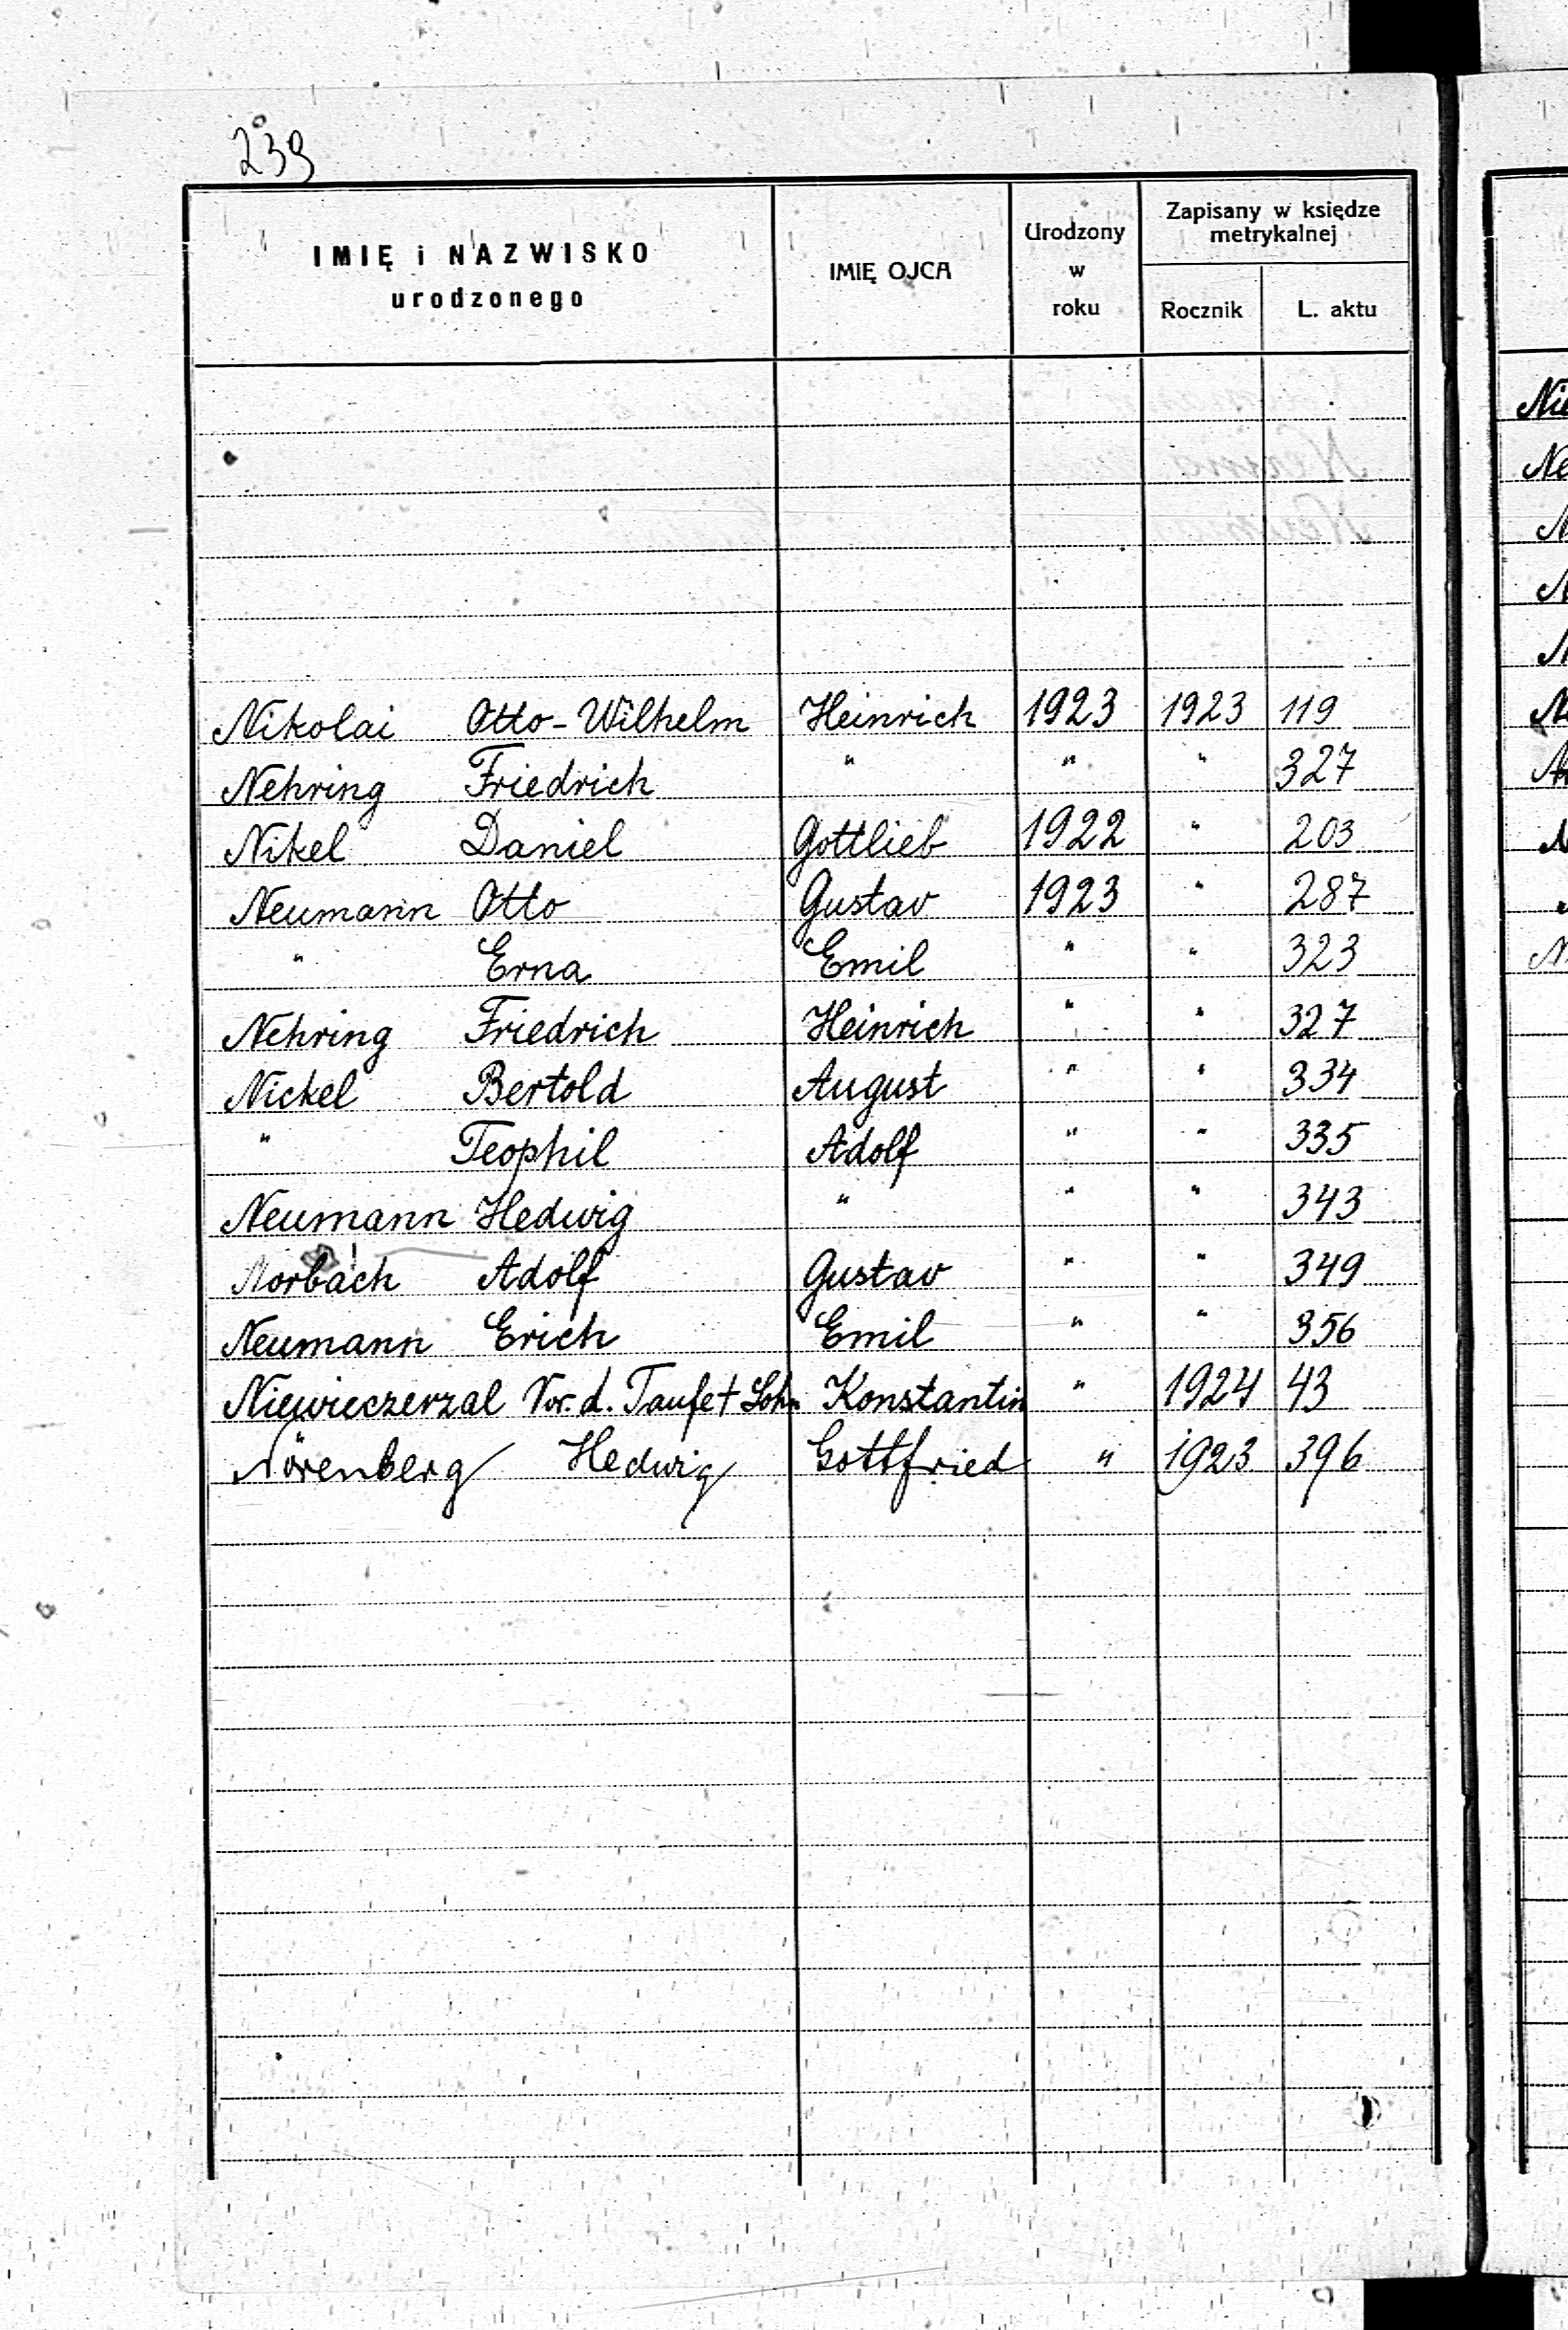 239
IMIĘ i NAZWISKO urodzonego | IMIĘ OJCA | Urodzony w roku | Zapisany w księdze metrykalnej
Rocznik | L. aktu
Nikolai Otto-Wilhelm Heinrich 1923 1923 119
Nehring Friedrich " " " 327
Nikel Daniel Gottlieb 1922 " 203
Neumann Otto Gustav 1923 " 287
" Erna Emil " " 323
Nehring Friedrich Heinrich " " 327
Nickel Bertold August " " 334
" Teophil Adolf " " 335
Neumann Hedwig " " " 343
Norbach Adolf Gustav " " 349
Neumann Erich Emil " " 356
Niewieczerzal Vor. d. Taufe + Sohn Konstantin " 1924 43
Nörenberg Hedwig Gottfried " 1923 396
Nie
Ne
N
N
N
N
N
N